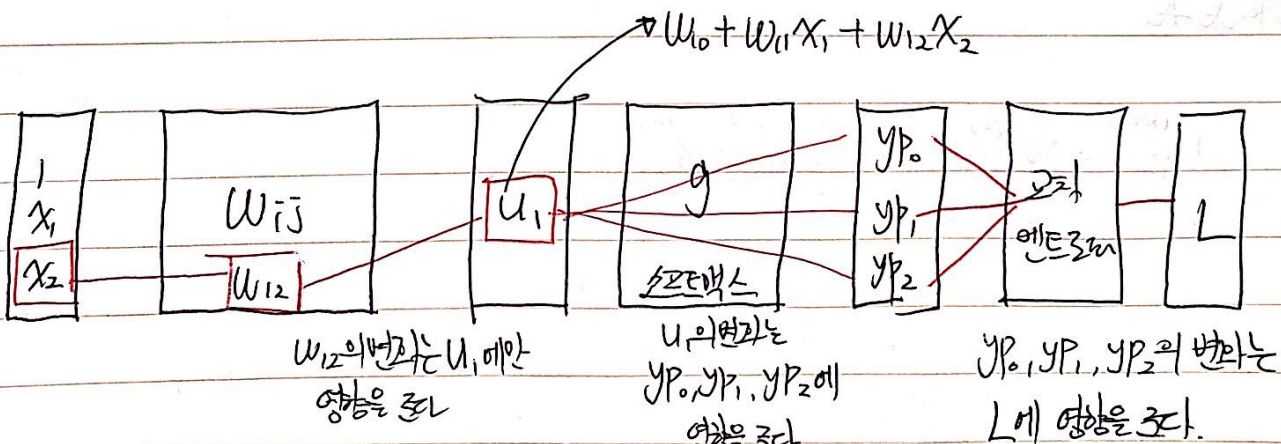 w₁₀ + w₁₁x₁ + w₁₂x₂
1
x₁
x₂
wᵢⱼ
w₁₂
u₁
g
소프트맥스
yp₀
yp₁
yp₂
교차
엔트로피
L
w₁₂의 변화는 u₁에만
영향을 준다
u₁의 변화는
yp₀, yp₁, yp₂에
영향을 준다
yp₀, yp₁, yp₂의 변화는
L에 영향을 준다.